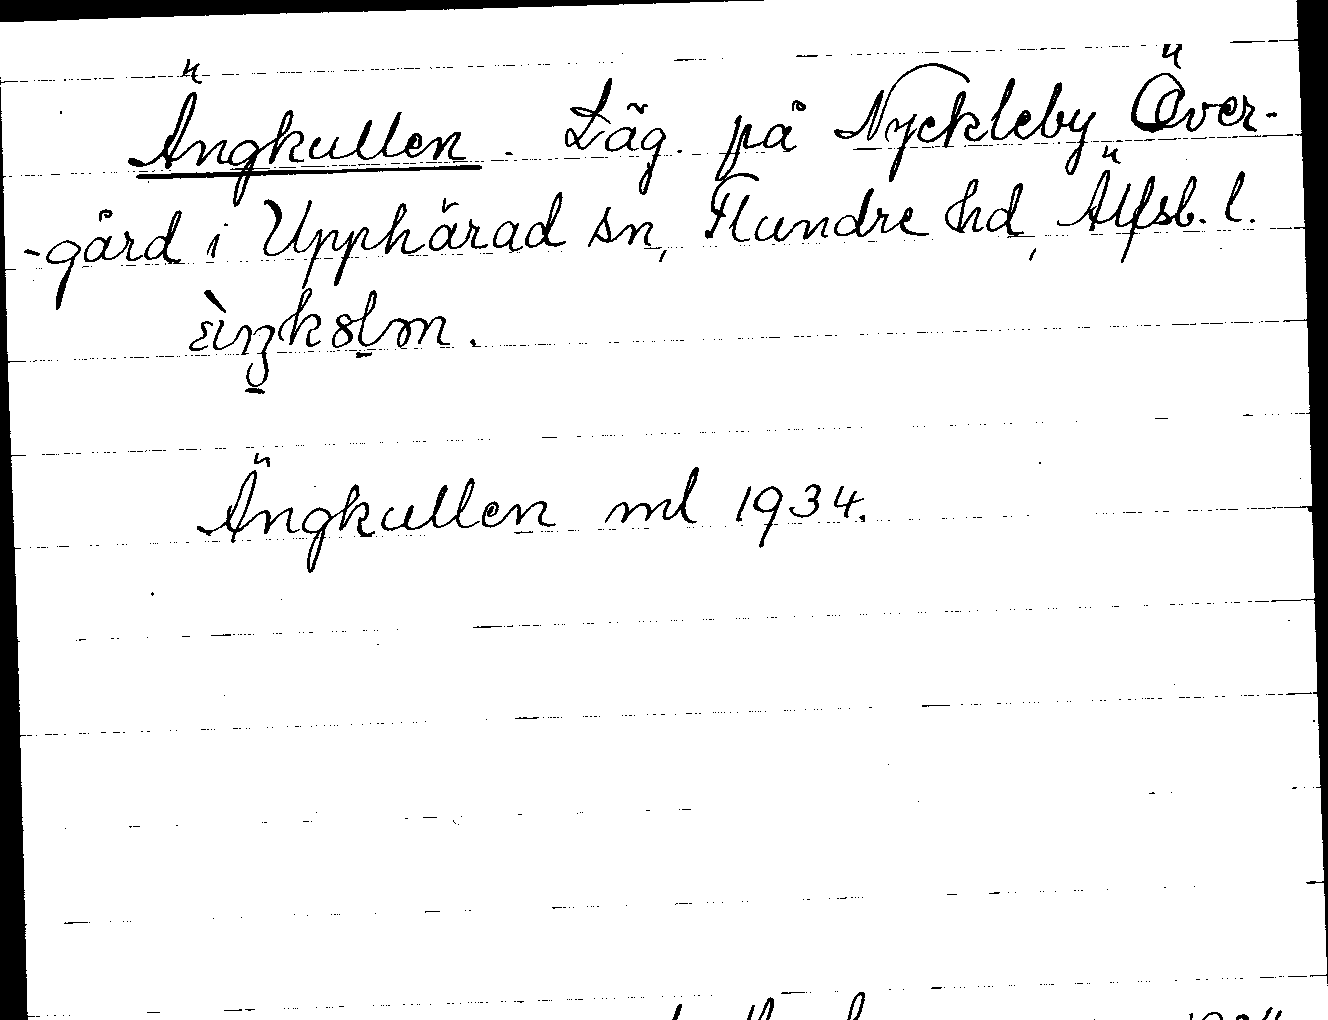 Ängkullen. Läg. på Nyckleby Över-
-gård i Upphärad sn, Flundre hd, Älfsb. l.
Ängkullen ml 1934.